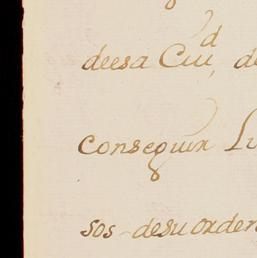 deesa Ciu,d de
conseguir Lu
sos desu orden